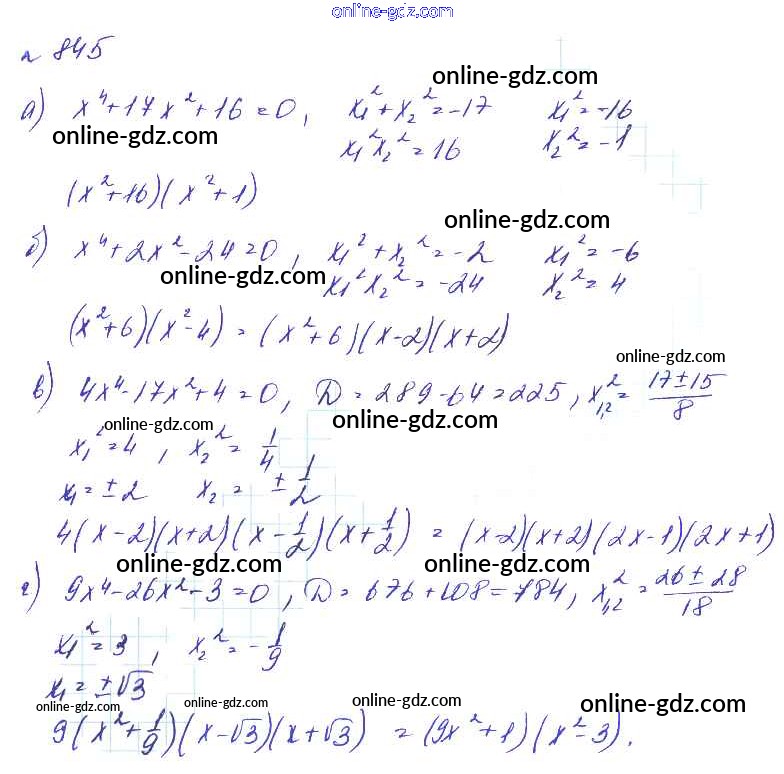 online-gdz.com
№ 845
online-gdz.com
а) x⁴+17x²+16=0, x₁²+x₂²=-17 x₁²=-16
online-gdz.com x₁²x₂²=16 x₂²=-1
(x²+16)(x²+1)
online-gdz.com
б) x⁴+2x²-24=0, x₁²+x₂²=-2 x₁²=-6
online-gdz.com x₁²x₂²=-24 x₂²=4
(x²+6)(x²-4) = (x²+6)(x-2)(x+2)
online-gdz.com
в) 4x⁴-17x²+4=0, D=289-64=225, x₁,₂²= (17±15)/8
online-gdz.com online-gdz.com
x₁²=4, x₂²= 1/4
x₁=±2 x₂= ±1/2
4(x-2)(x+2)(x-1/2)(x+1/2) = (x-2)(x+2)(2x-1)(2x+1)
online-gdz.com online-gdz.com
г) 9x⁴-26x²-3=0, D=676+108=784, x₁,₂²= (26±28)/18
online-gdz.com
x₁²=3, x₂²=-1/9
x₁=±√3
online-gdz.com online-gdz.com online-gdz.com online-gdz.com
9(x²+1/9)(x-√3)(x+√3) = (9x²+1)(x²-3).